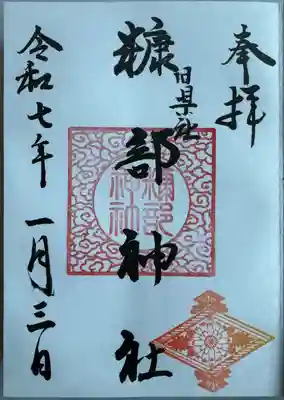 奉拝
旧県社
糠部神社
糠部神社
令和七年 一月三日